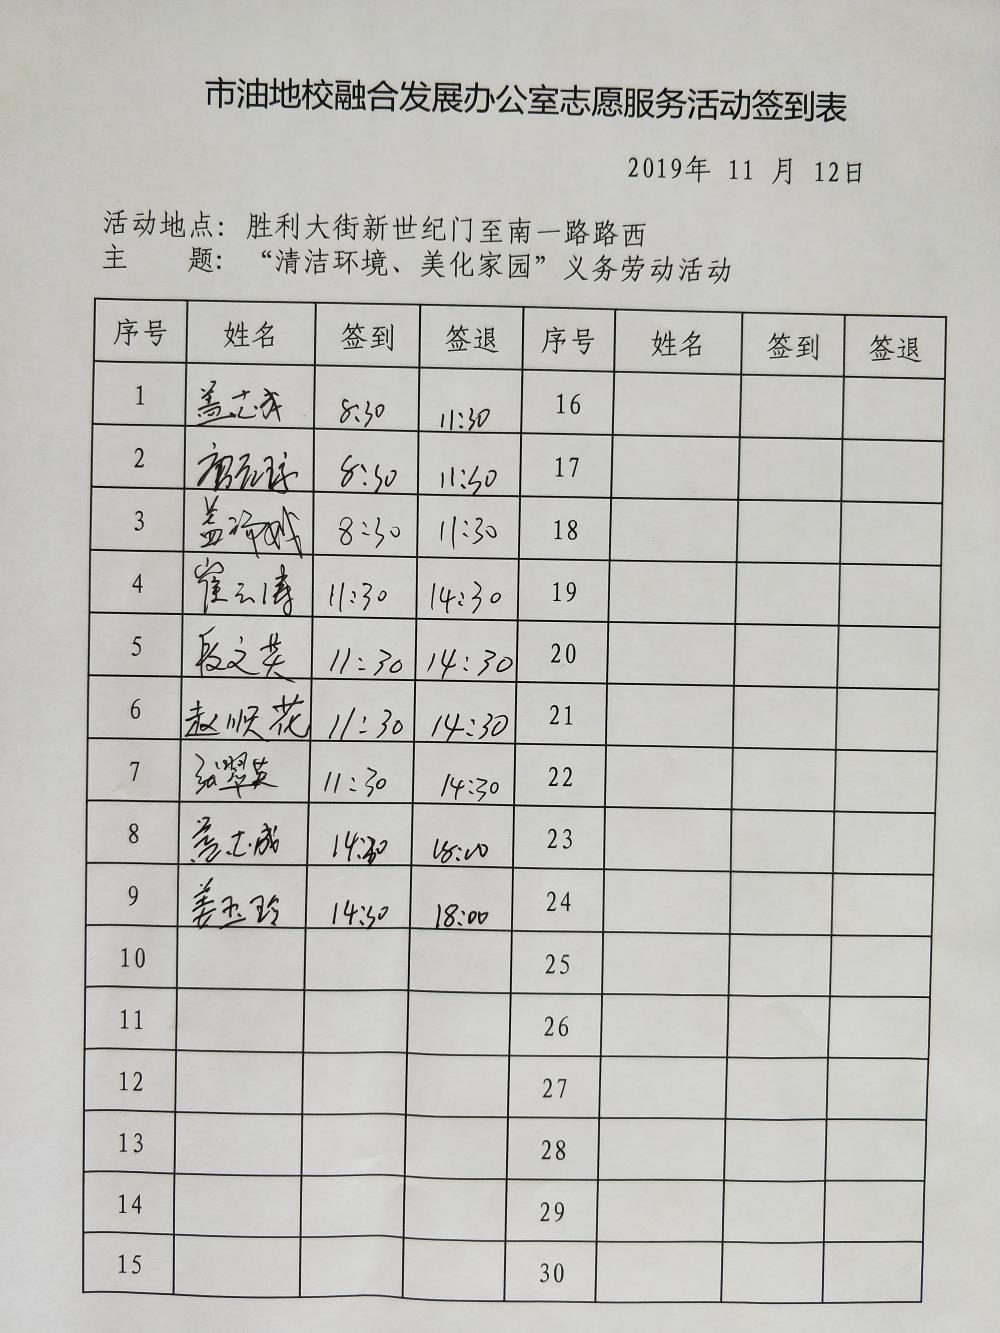 市油地校融合发展办公室志愿服务活动签到表
2019年 11 月 12日
活动地点：胜利大街新世纪门至南一路路西
主 题：“清洁环境、美化家园”义务劳动活动
序号 姓名 签到 签退 序号 姓名 签到 签退
1 盖志成 8:30 11:30 16
2 8:30 11:30 17
3 8:30 11:30 18
4 崔云涛 11:30 14:30 19
5 段文英 11:30 14:30 20
6 赵顺花 11:30 14:30 21
7 张翠英 11:30 14:30 22
8 盖志成 14:30 18:00 23
9 姜玉玲 14:30 18:00 24
10 25
11 26
12 27
13 28
14 29
15 30